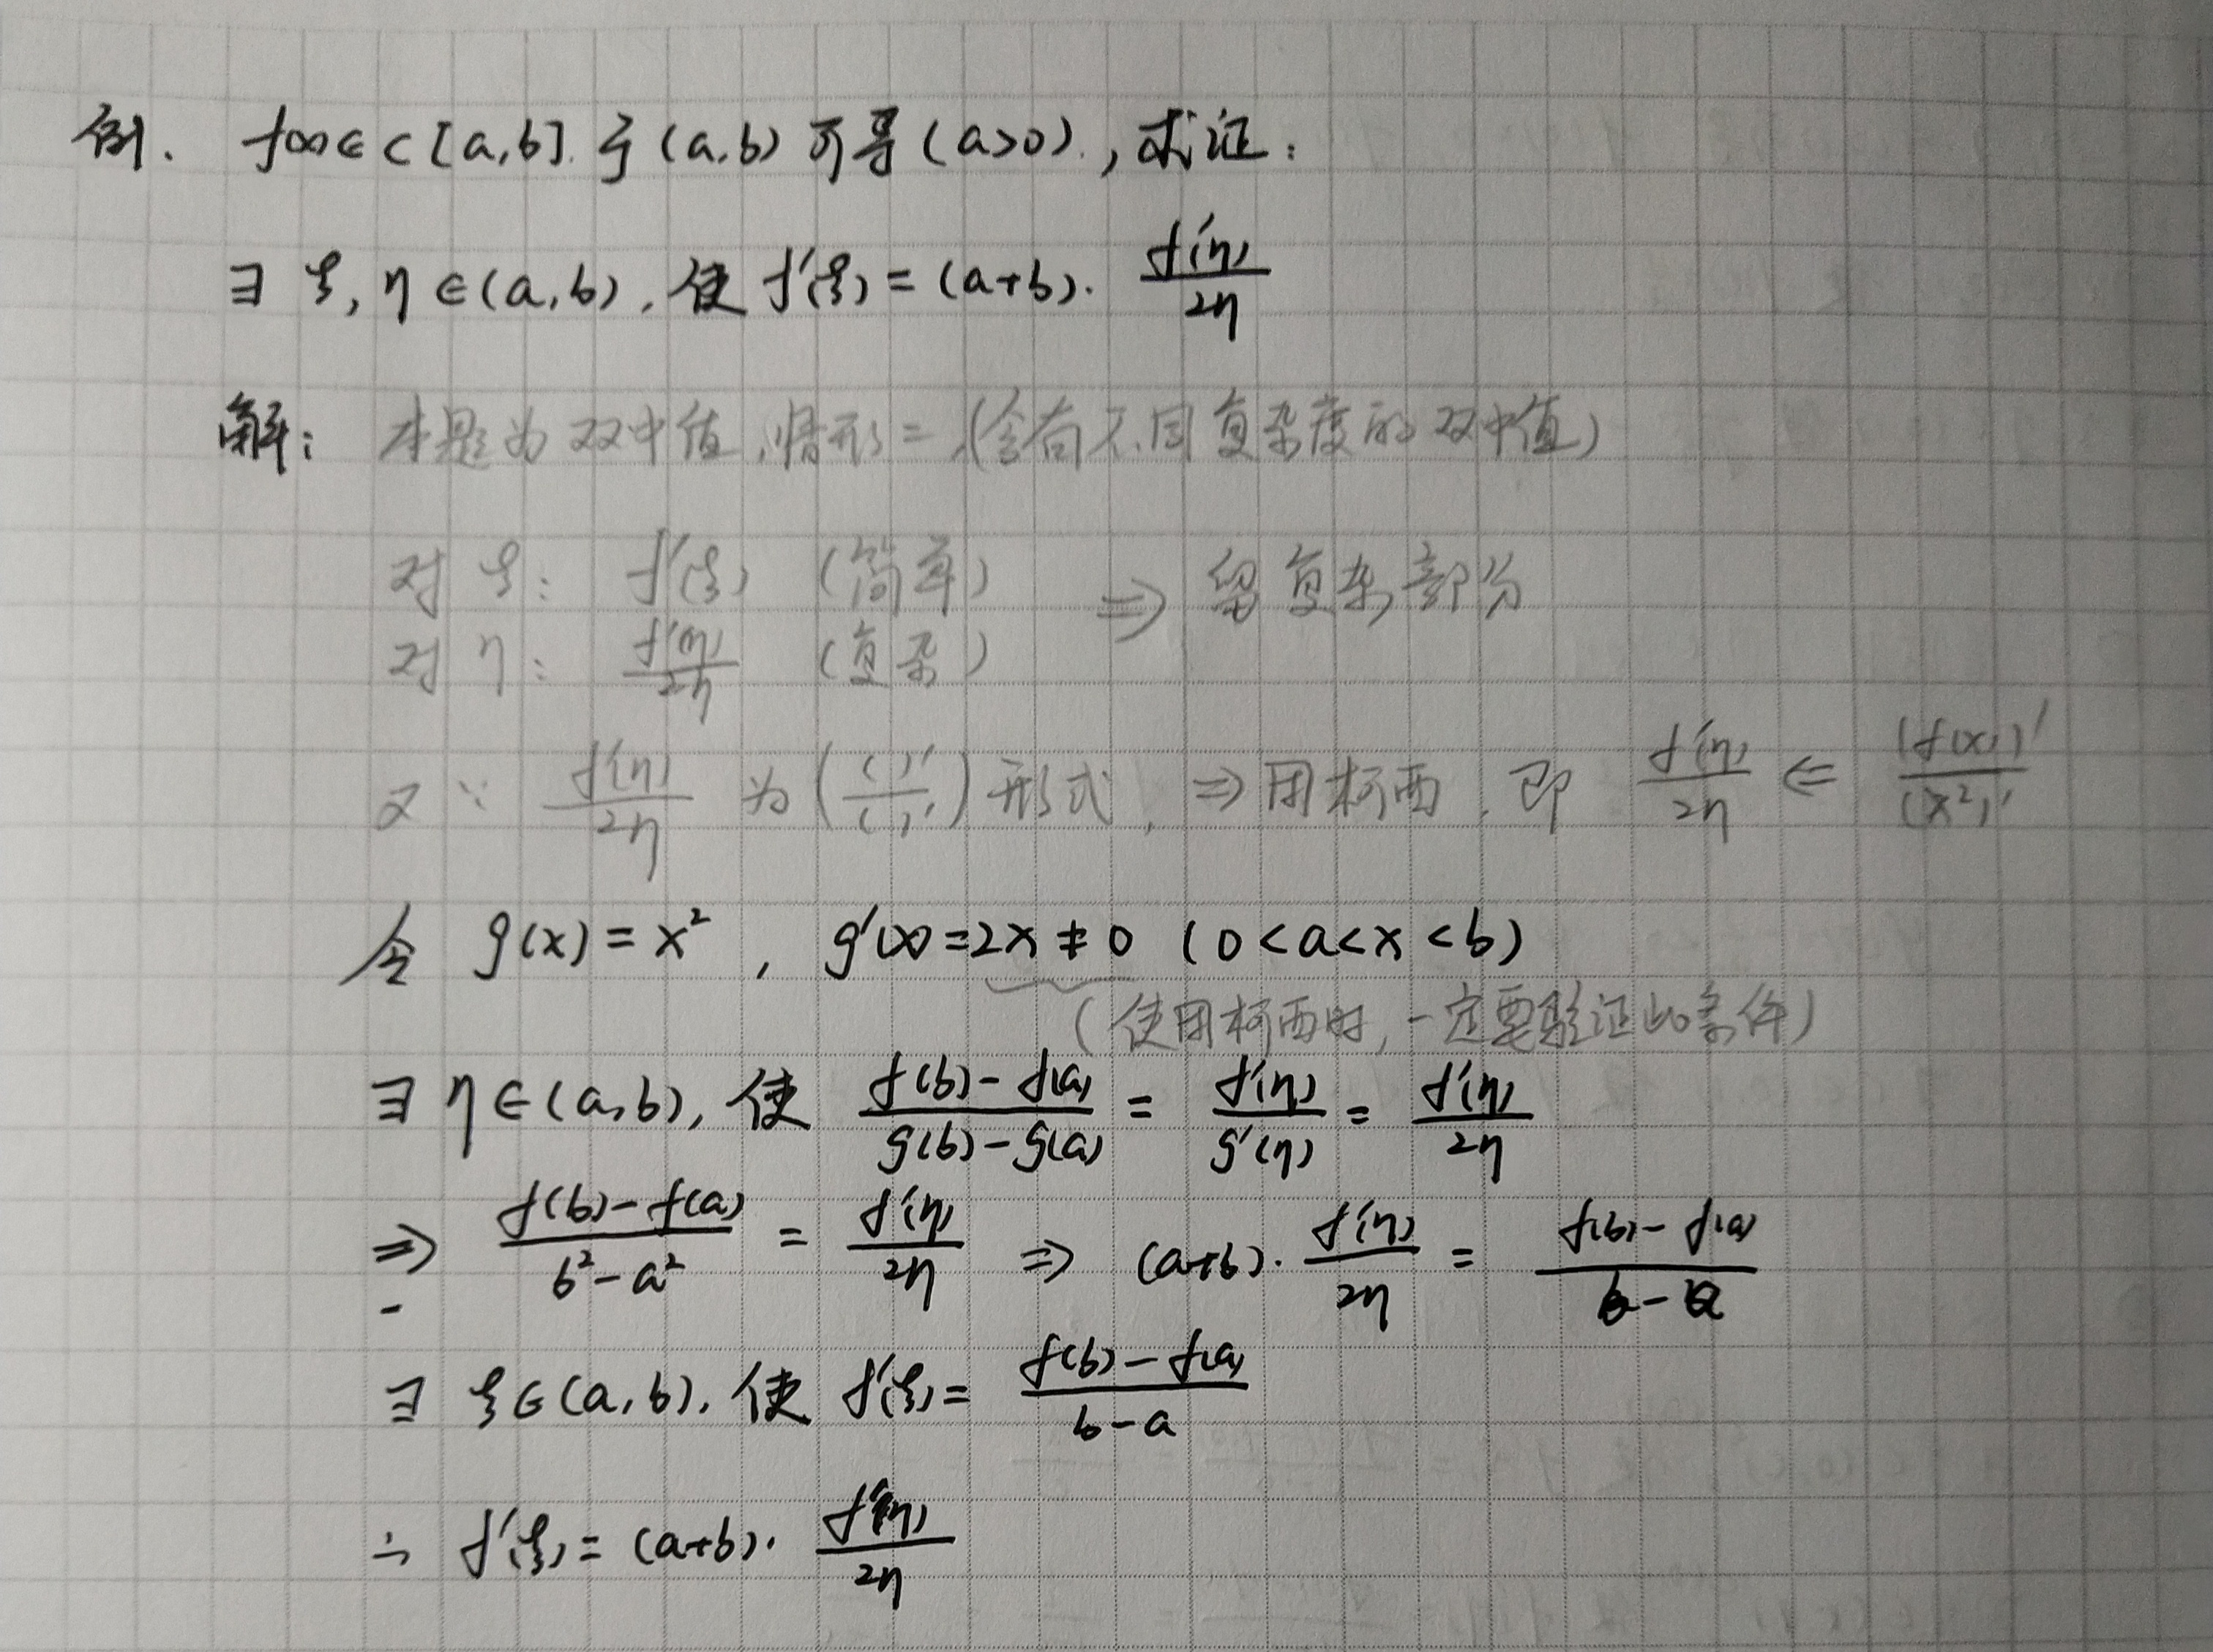 例. f(x)∈C[a,b].于(a,b)可导(a>0).,求证:
∃ ξ,η∈(a,b).使f'(ξ)=(a+b)·f'(η)/2η
解: 本题为双中值,情形二.(含有不同复杂度的双中值)
对ξ: f'(ξ) (简单) ⇒ 留复杂部分
对η: f'(η)/2η (复杂)
又∵ f'(η)/2η 为(( )'/( )')形式, ⇒用柯西.即 f'(η)/2η ⇐ (f(x))'/(x²)'
令 g(x)=x², g'(x)=2x≠0 (0<a<x<b)
(使用柯西时,一定要验证此条件)
∃ η∈(a,b),使 (f(b)-f(a))/(g(b)-g(a)) = f'(η)/g'(η) = f'(η)/2η
⇒ (f(b)-f(a))/(b²-a²) = f'(η)/2η ⇒ (a+b)·f'(η)/2η = (f(b)-f(a))/(b-a)
∃ ξ∈(a,b).使 f'(ξ)= (f(b)-f(a))/(b-a)
∴ f'(ξ)=(a+b)·f'(η)/2η